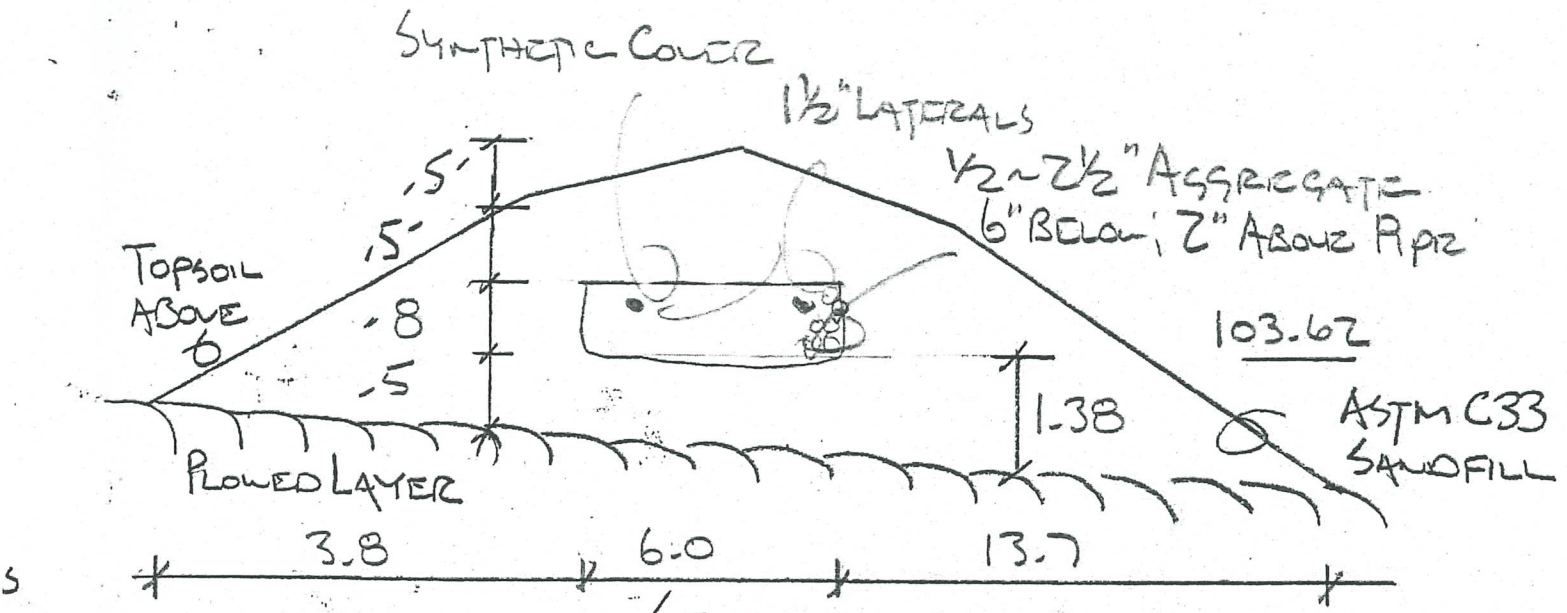 SYNTHETIC COVER
1½" LATERALS
½~2½" AGGREGATE
6" BELOW; 2" ABOVE PIPE
.5'
.5'
TOPSOIL
ABOVE
.8
.5
103.62
1.38
ASTM C33
SANDFILL
PLOWED LAYER
3.8
6.0
13.7
S